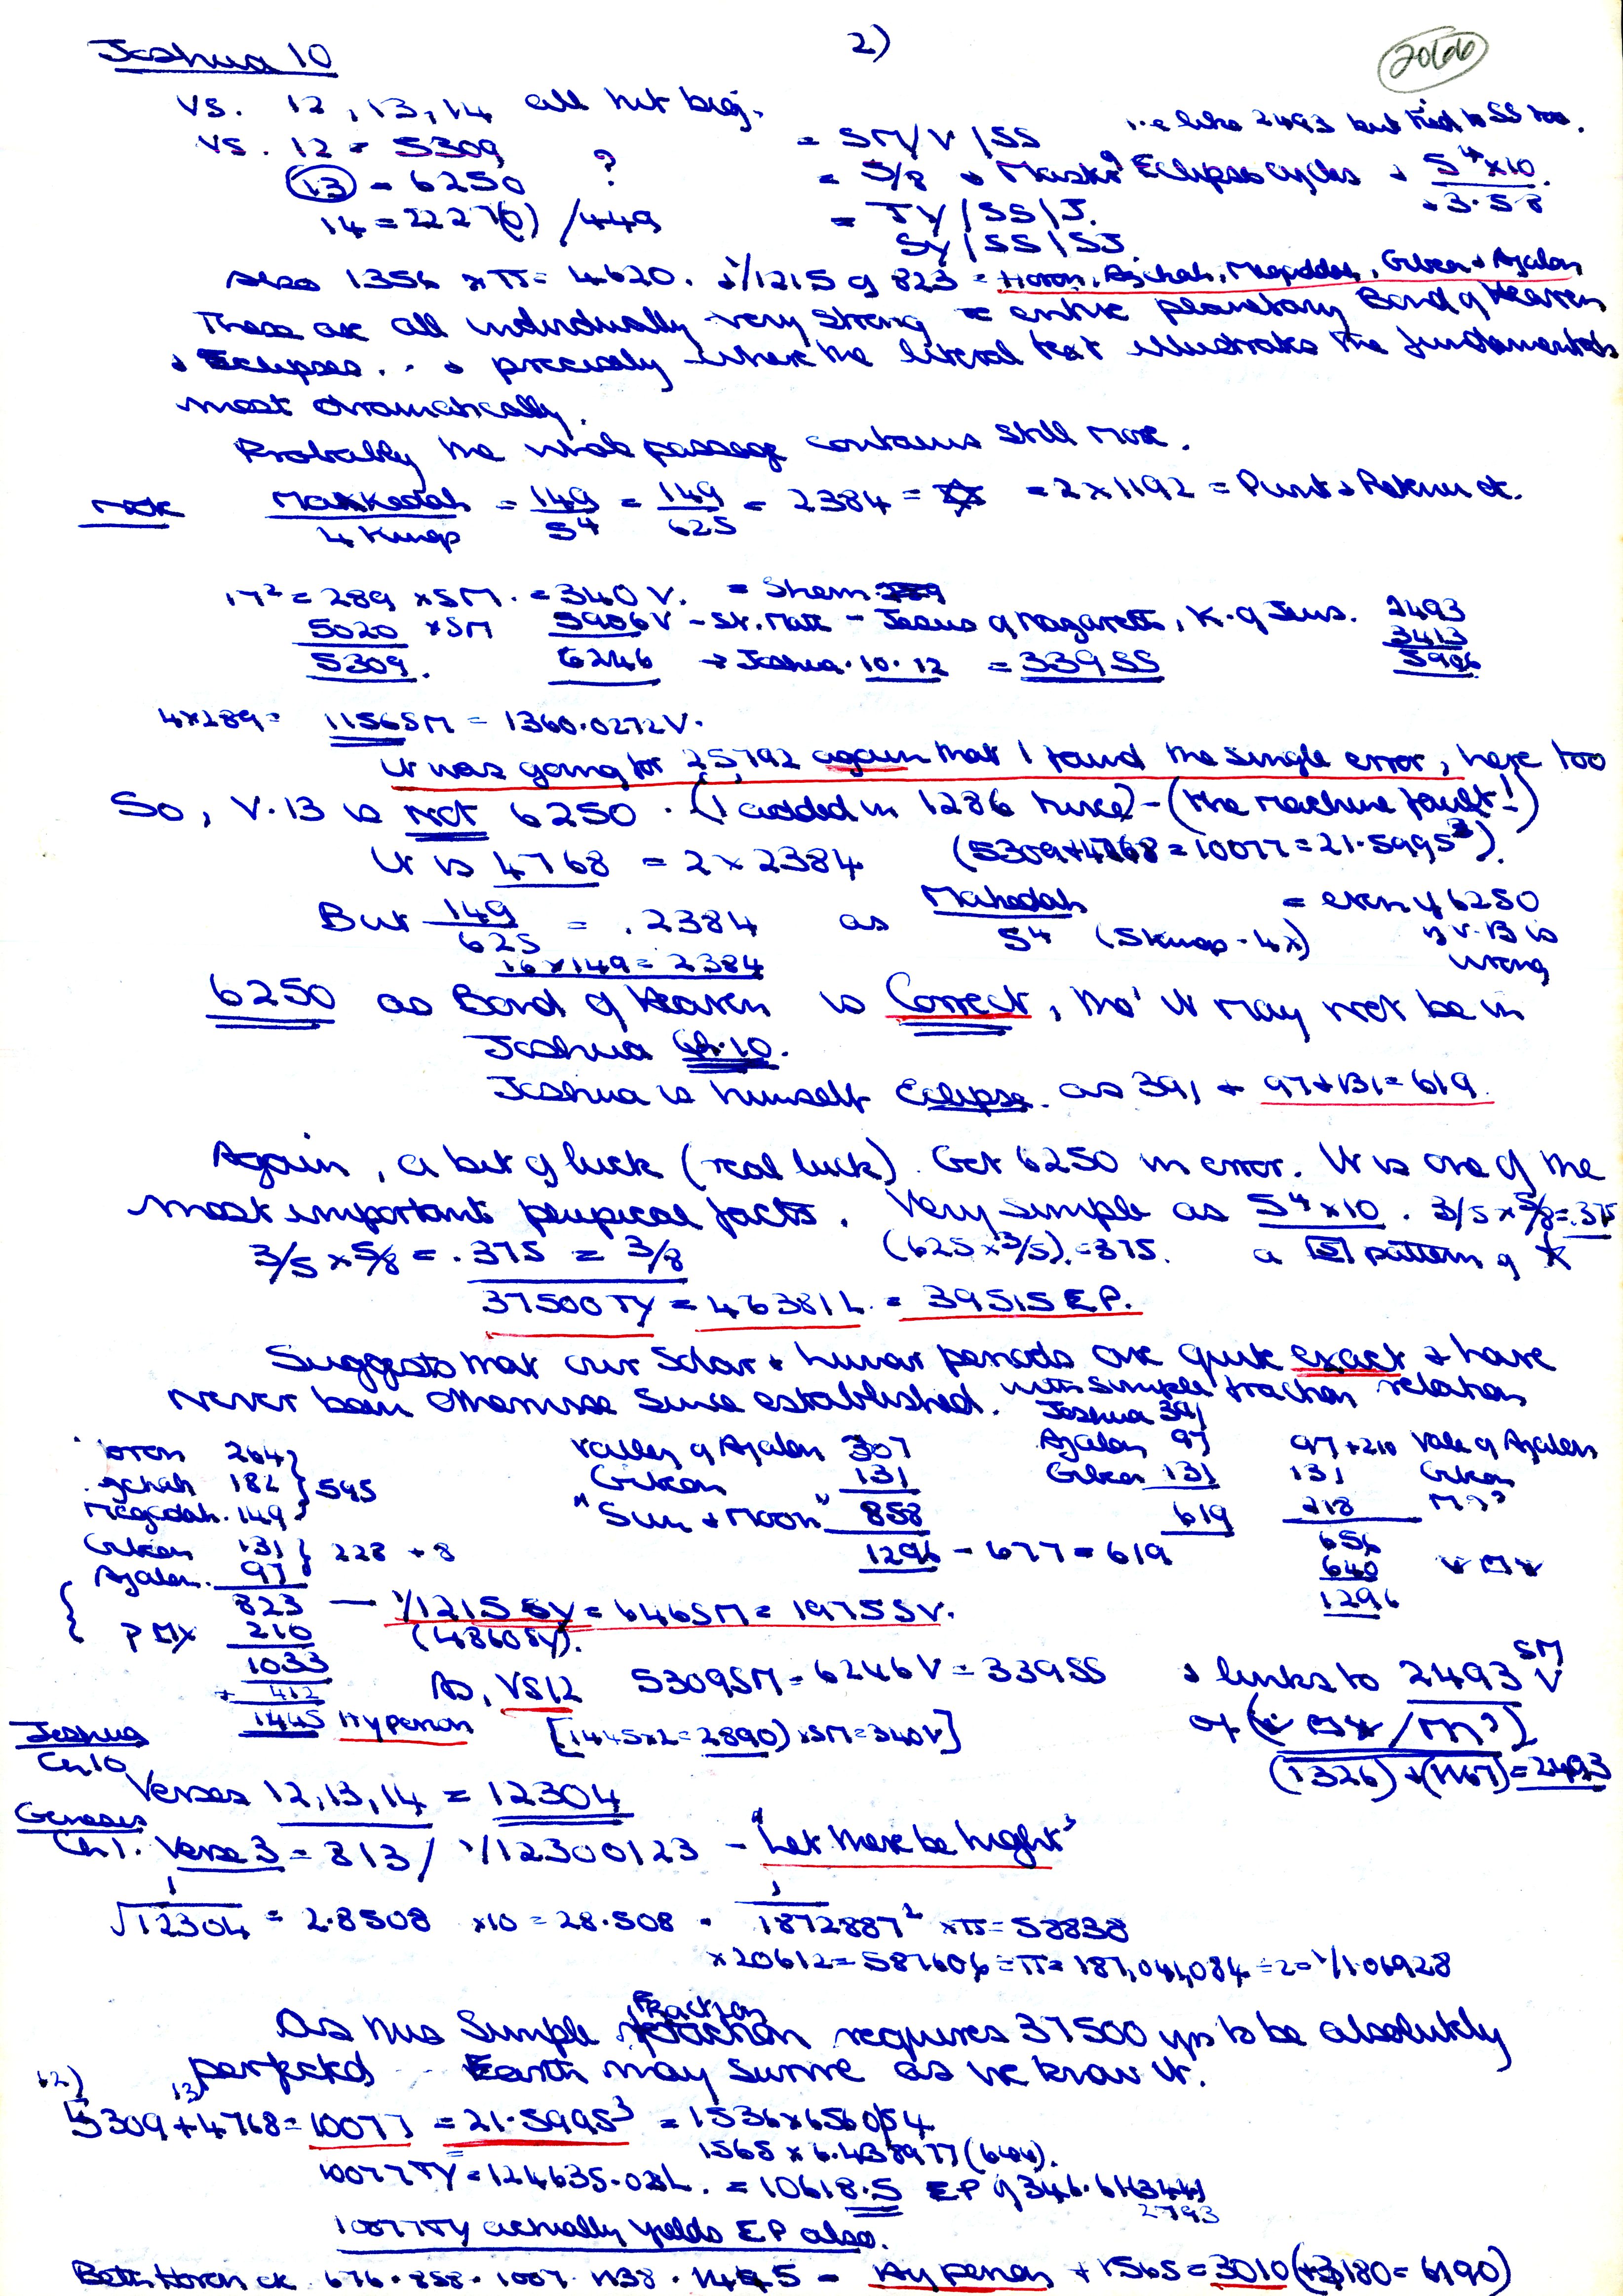 Joshua 10
2)
2066
vs. 12, 13, 14 all hit big.
i.e like 2493 but tied to SS too.
vs. 12 = 5309 = SM/V/SS
13 = 6250 ? = 5/8 + Master Eclipse cycles + 5⁴x10
14 = 2227(0) /449 = TY/SS/J.
SY/SS/SJ.
Also 1356 x π = 4620. + 1/1215 of 823 = Horon, Azekah, Megiddah, Gibeon + Ajalon
These are all individually very strong = entire planetary Bond of Heaven
+ Eclipses .. + precisely where the literal text illustrates the fundamentals
most dramatically.
Probably the whole passage contains still more.
Note Makkedah / 4 Kings = 149/5⁴ = 149/625 = 2384 = ✡ = 2 x 1192 = Punt + Return ct.
17² = 289 x SM. = 340 V. = Shem
5020 x SM 5906 V - St. Matt - Jesus of Nazareth, K. of Jews. 2493
3413
5309. 6246 → Joshua. 10. 12 = 339 SS 5906
4x289 = 1156 SM = 1360.0272 V.
It was going for 25,792 again that I found the single error, here too
So, V.13 is not 6250. (I added in 1286 twice) - (the machine fault!)
It is 4768 = 2 x 2384 (5309+4768 = 10077 = 21.5995³).
But 149/625 = .2384 as Makedah / 5⁴ (5 Kings - 4x) = even if 6250
in v.13 is
wrong
16 x 149 = 2384
6250 as Bond of Heaven is Correct, tho' it may not be in
Joshua Ch.10.
Joshua is himself Eclipse. as 391 + 97+131 = 619.
Again, a bit of luck (real luck). Get 6250 in error. It is one of the
most important facts. Very simple as 5⁴x10. 3/5 x 5/8 = .375
3/5 x 5/8 = .375 = 3/8 (625 x 3/5). = 375. a [5] pattern of ✡
37500 TY = 463811 L. = 39515 E.P.
Suggests that our Solar + Lunar periods are quite exact + have
never been otherwise since established. with simple fraction relation
Horon 264
Azekah 182 } 595
Megedah. 149
Gibeon 131 } 228 + 8
Ajalon. 97
823 — 1/1215 SY = 646 SM = 1975 SV.
210 (4860 SY).
1033
+ 412
1445 Hyperion
Valley of Ajalon 307
Gibeon 131
"Sun + Moon" 858
1296 - 677 = 619
Joshua 391
Ajalon 97
Gibeon 131
619
97+210 Vale of Ajalon
131 Gibeon
218 M??
656
640
1296
As, VS12 5309 SM = 6246 V = 339 SS + links to 2493 SM V
[1445x2 = 2890) x SM = 340 V]
(1326) + (1167) = 2493
Joshua
Ch 10
Verses 12, 13, 14 = 12304
Genesis
Ch 1. Verse 3 = 813 / 1/12300123 - "Let there be light"
√12304 = 2.8508 x10 = 28.508 . 1872887² x π = 58838
x 20612 = 587606 ÷ π = 187,041,084 ÷ 2 = 1/1.06928
As this Simple Fraction requires 37500 yrs to be absolutely
perfected Earth may survive as we know it.
12) 13)
5309 + 4768 = 10077 = 21.5995³ = 1536 x 656054
1565 x 6.438977 (644).
10077 TY = 124635.02 L. = 10618.5 EP of 346.61
2793
10077 TY actually yields EP also.
Beth Horon ck 676. 858. 1007. 1138. 1445 - Hyperion + 1565 = 3010 (+3180 = 6190)